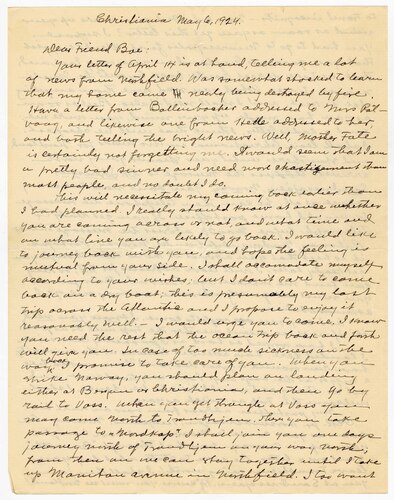 Christiania May 6, 1924.
Dear Friend Boe:
Your letter of April 14 is at hand, telling me a lot
of news from Northfield. Was somewhat shocked to learn
that my home came nearly being destroyed by fire.
Have a letter from Bollenbacker addressed to
and likewise one from addressed to her
and both telling the bright news. Well, Mother Fate
is certainly not forgetting me. It would seem that I am
a pretty bad sinner and need more chastizement than
most people, and no doubt I do.
This will necessitate my coming back earlier than
I had planned. I really should know at once whether
you are coming across or not, and what time and
on what line you are likely to go back. I would like
to journey back with you, and hope the feeling is
mutual from your side. I shall accomodate myself
according to your wishes, but I don't care to come
back on a dry boat; this is presumably my last
trip across the Atlantic and I propose to enjoy it
reasonably well. - I would urge you to come, I know
you need the rest that the ocean trip back and forth
will give you. In case of too much sickness on the
way back I promise to take care of you. When you
strike Norway, you should plan on landing
either at Bergen or Christiania, and then go by
rail to Voss. When you get through at Voss you
may come north to Trondhjem. There you take
passage to Nordkap. I shall join you one days
journey north of Trondhjem on your way north,
from then on we can stay together until I take
up Manitou avenue in Northfield. I too want